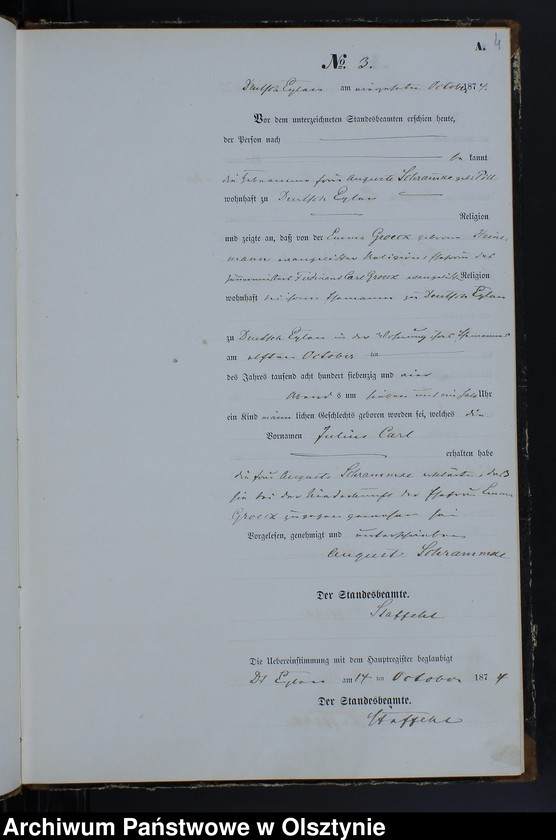 A. 4
No. 3.
Deutsch Eylau am vierzehnten October 1874.
Vor dem unterzeichneten Standesbeamten erschien heute,
der Person nach
be kannt
die Hebeamme Frau Auguste Schrammke geb.
wohnhaft zu Deutsch Eylau
Religion
und zeigte an, daß von der Emma Groeck geborene Heine-
mann evangelischer Religion, Ehefrau des
Ferdinand Carl Groeck evangelischer Religion
wohnhaft bei ihrem Ehemanne zu Deutsch Eylau
zu Deutsch Eylau in der Wohnung ihres Ehemannes
am elften October
des Jahres tausend acht hundert siebenzig und vier
Abends um sieben und ein halb Uhr
ein Kind männlichen Geschlechts geboren worden sei, welches die
Vornamen Julius Carl
erhalten habe
die Frau Auguste Schrammke erklärte, daß
sie bei der Niederkunft der Ehefrau Emma
Groeck zugegen gewesen sei
Vorgelesen, genehmigt und unterschrieben
Auguste Schrammke
Der Standesbeamte.
Staffehl
Die Uebereinstimmung mit dem Hauptregister beglaubigt
Dt Eylau am 14 ten October 1874
Der Standesbeamte.
Staffehl
Archiwum Państwowe w Olsztynie